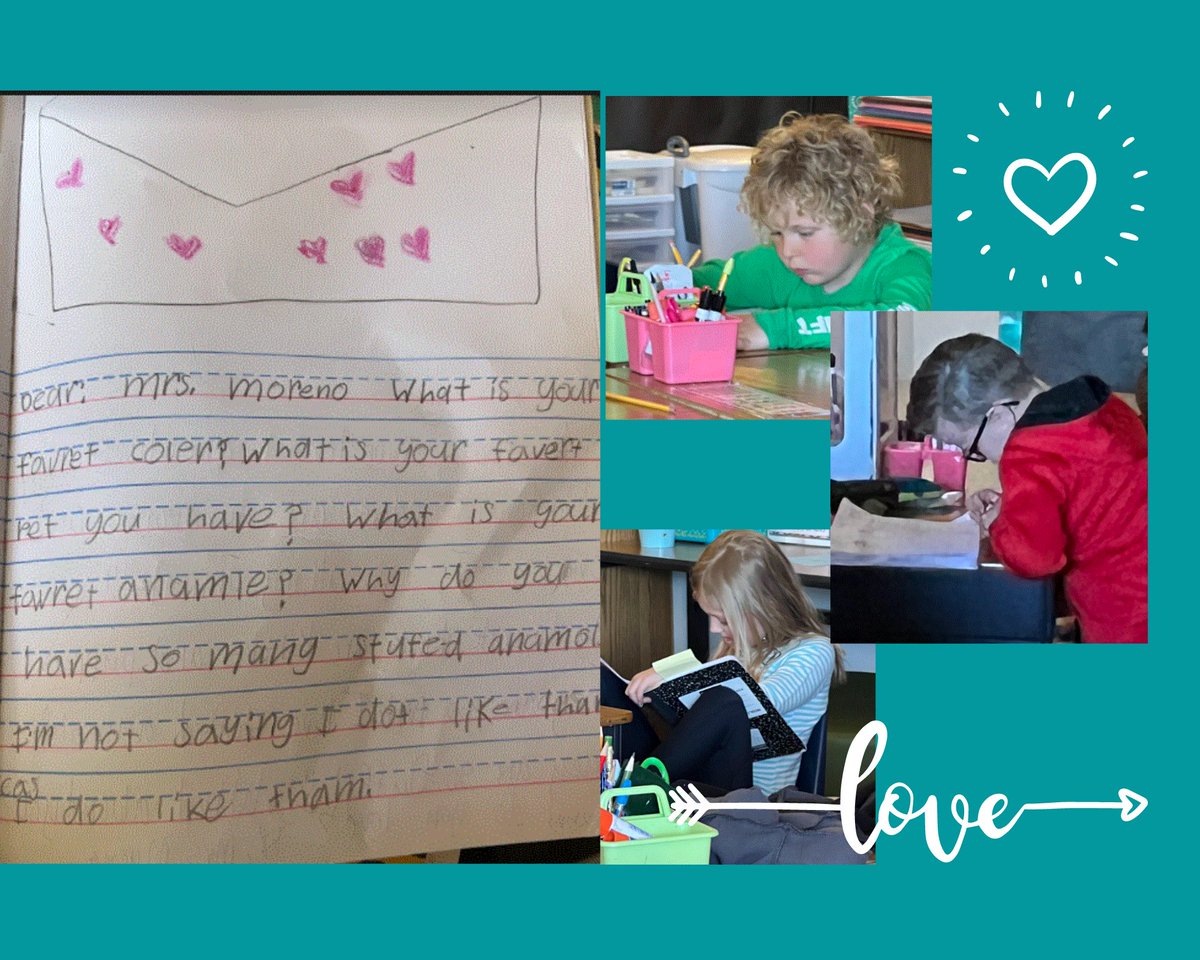 Dear: Mrs. Moreno What is your
favret coler? What is your favert
ret you have? What is your
favret anamle? Why do you
have so many stufed anamol
I'm not saying I dot like tham
cas
I do like tham.
love